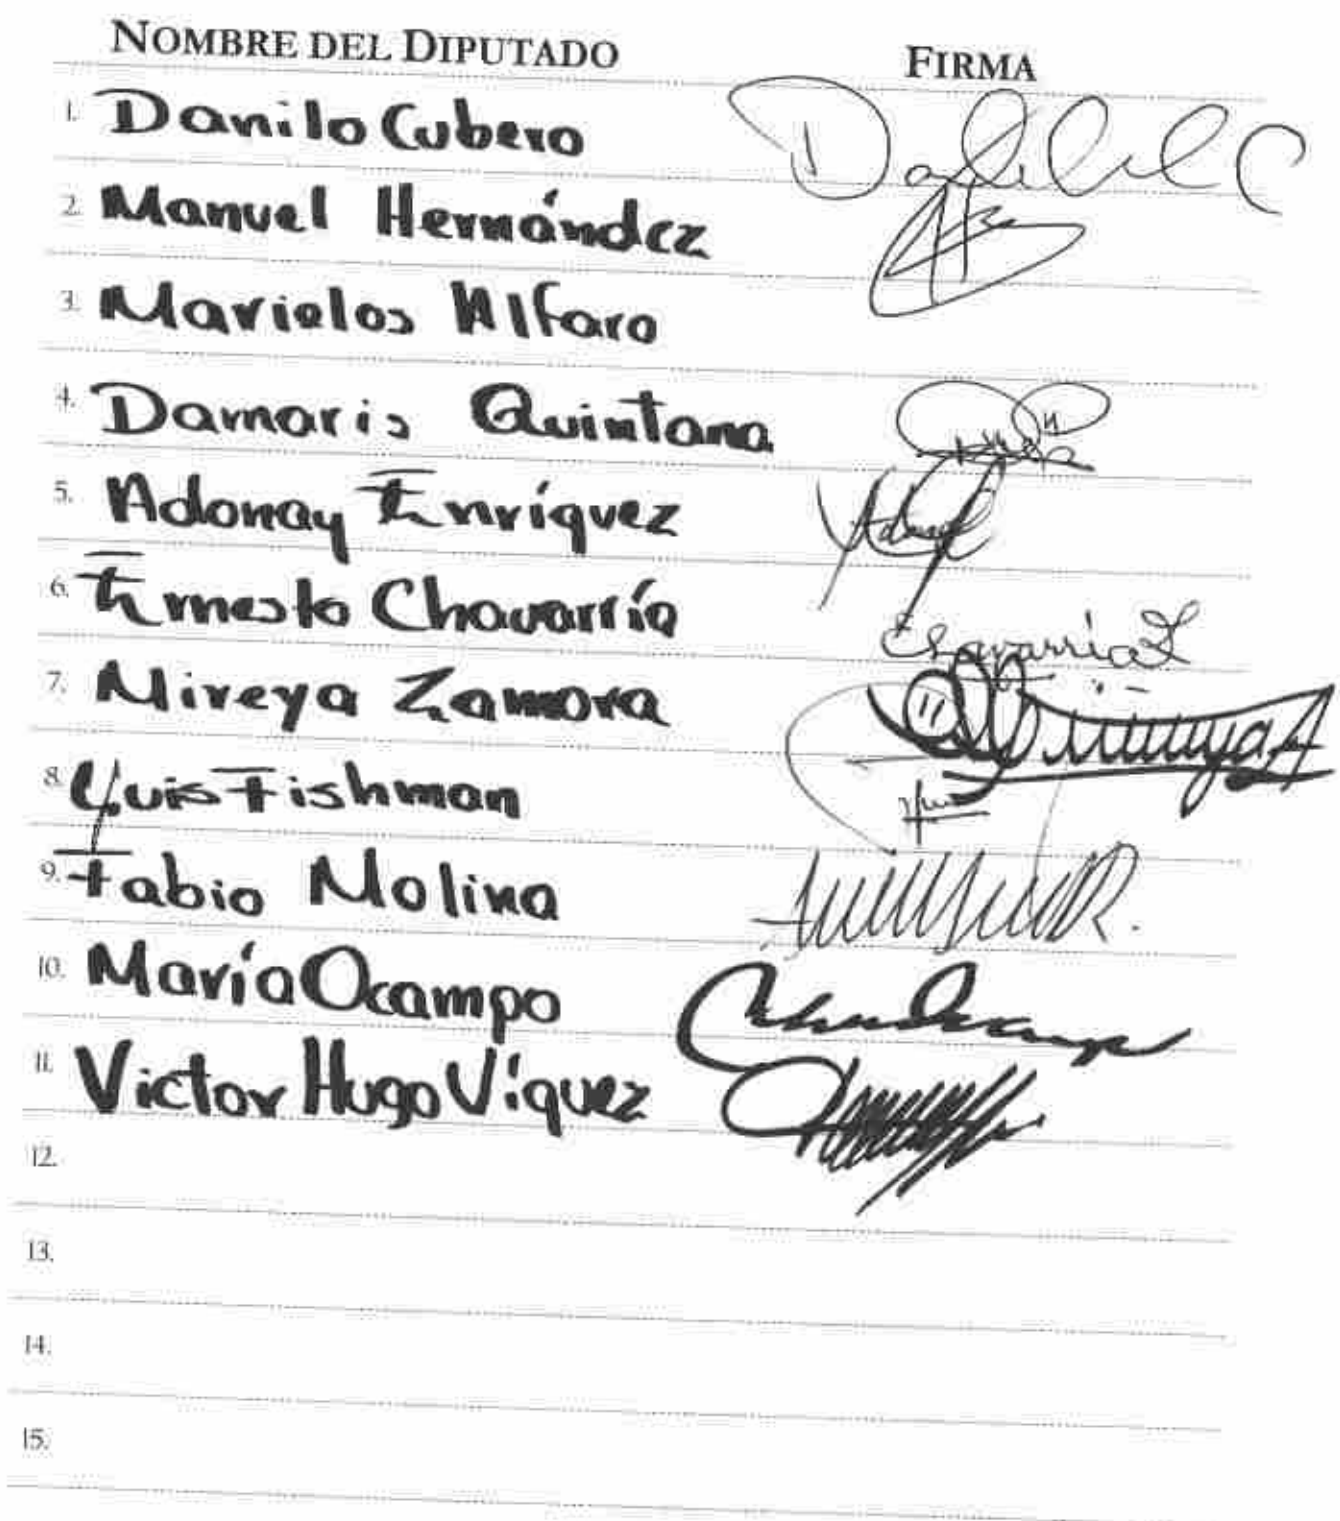 NOMBRE DEL DIPUTADO FIRMA
1. Danilo Cubero
2. Manuel Hernández
3. Marielos Alfaro
4. Damaris Quintana
5. Adonay Enríquez
6. Ernesto Chavarría Chavarría
7. Mireya Zamora
8. Luis Fishman
9. Fabio Molina
10. María Ocampo
11. Victor Hugo Víquez
12.
13.
14.
15.